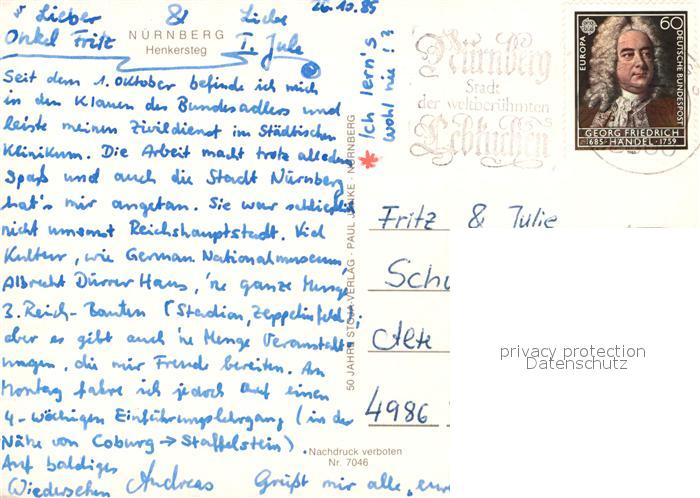 Lieber & Liebe 26.10.85
Onkel Fritz T. Jule
NÜRNBERG
Henkersteg
Seit dem 1. Oktober befinde ich mich
in den Klauen des Bundesadlers und
leiste meinen Zivildienst im Städtischen
Klinikum. Die Arbeit macht trotz alledem
Spaß und auch die Stadt Nürnberg
hat's mir angetan. Sie war schließlich
nicht umsonst Reichshauptstadt. Viel
Kultur, wie German. Nationalmuseum,
Albrecht Dürrer Haus, 'ne ganze Menge
3. Reich-Bauten (Stadion, Zeppelinfeld
aber es gibt auch 'ne Menge Veranstalt
ungen, die mir Freude bereiten. Am
Montag fahre ich jedoch auf einen
4-wöchigen Einführungslehrgang (in der
Nähe von Coburg → Staffelstein).
Auf baldiges
Wiedersehen Andreas Grüßt mir alle, eure
* Ich lern's
wohl nie!?
50 JAHRE STOJA-VERLAG · PAUL JANKE · NÜRNBERG
Nachdruck verboten
Nr. 7046
Nürnberg
Stadt
der weltberühmten
Lebkuchen
EUROPA
60
DEUTSCHE BUNDESPOST
GEORG FRIEDRICH
1685 · HÄNDEL · 1759
Fritz & Julie
Schu
Alte
4986
privacy protection
Datenschutz